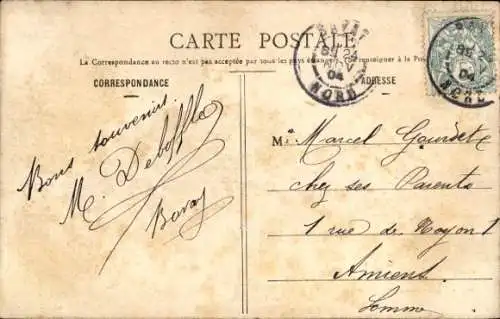 CARTE POSTALE
La Correspondance au recto n'est pas acceptée par tous les pays étrangers. Se renseigner à la Poste
CORRESPONDANCE
ADRESSE
NORD
04
NORD
04
Bons souvenirs
M. Deboffle
Bavay
M. Marcel Gourdet
chez ses Parents
1 rue de Noyon 1
Amiens
Somme